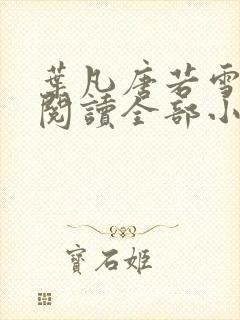 葉凡唐若雪
閱讀全部小
寶石姬